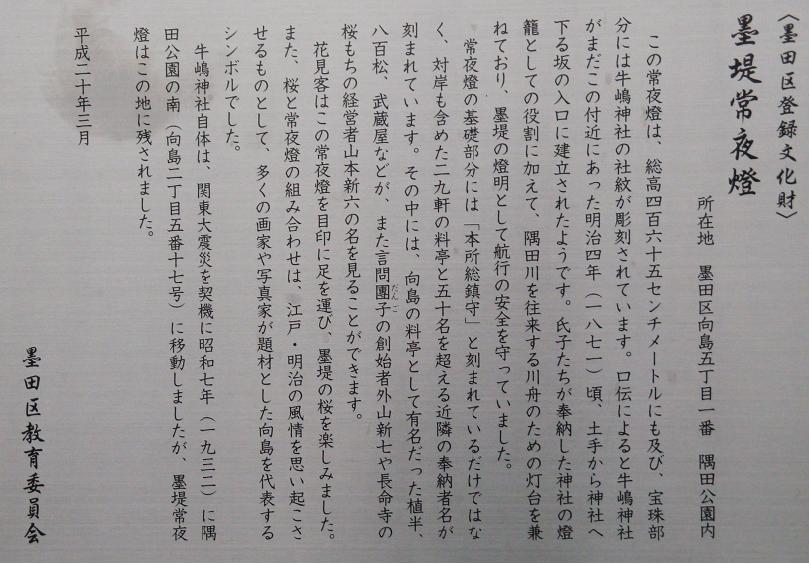 〈墨田区登録文化財〉
墨堤常夜燈
所在地　墨田区向島五丁目一番　隅田公園内
この常夜燈は、総高四百六十五センチメートルにも及び、宝珠部
分には牛嶋神社の社紋が彫刻されています。口伝によると牛嶋神社
がまだこの付近にあった明治四年（一八七一）頃、土手から神社へ
下る坂の入口に建立されたようです。氏子たちが奉納した神社の燈
籠としての役割に加えて、隅田川を往来する川舟のための灯台を兼
ねており、墨堤の燈明として航行の安全を守っていました。
常夜燈の基礎部分には「本所総鎮守」と刻まれているだけではな
く、対岸も含めた二九軒の料亭と五十名を超える近隣の奉納者名が
刻まれています。その中には、向島の料亭として有名だった植半、
八百松、武蔵屋などが、また言問團子の創始者外山新七や長命寺の
だんご
桜もちの経営者山本新六の名を見ることができます。
花見客はこの常夜燈を目印に足を運び、墨堤の桜を楽しみました。
また、桜と常夜燈の組み合わせは、江戸・明治の風情を思い起こさ
せるものとして、多くの画家や写真家が題材とした向島を代表する
シンボルでした。
牛嶋神社自体は、関東大震災を契機に昭和七年（一九三二）に隅
田公園の南（向島二丁目五番十七号）に移動しましたが、墨堤常夜
燈はこの地に残されました。
平成二十年三月
墨田区教育委員会